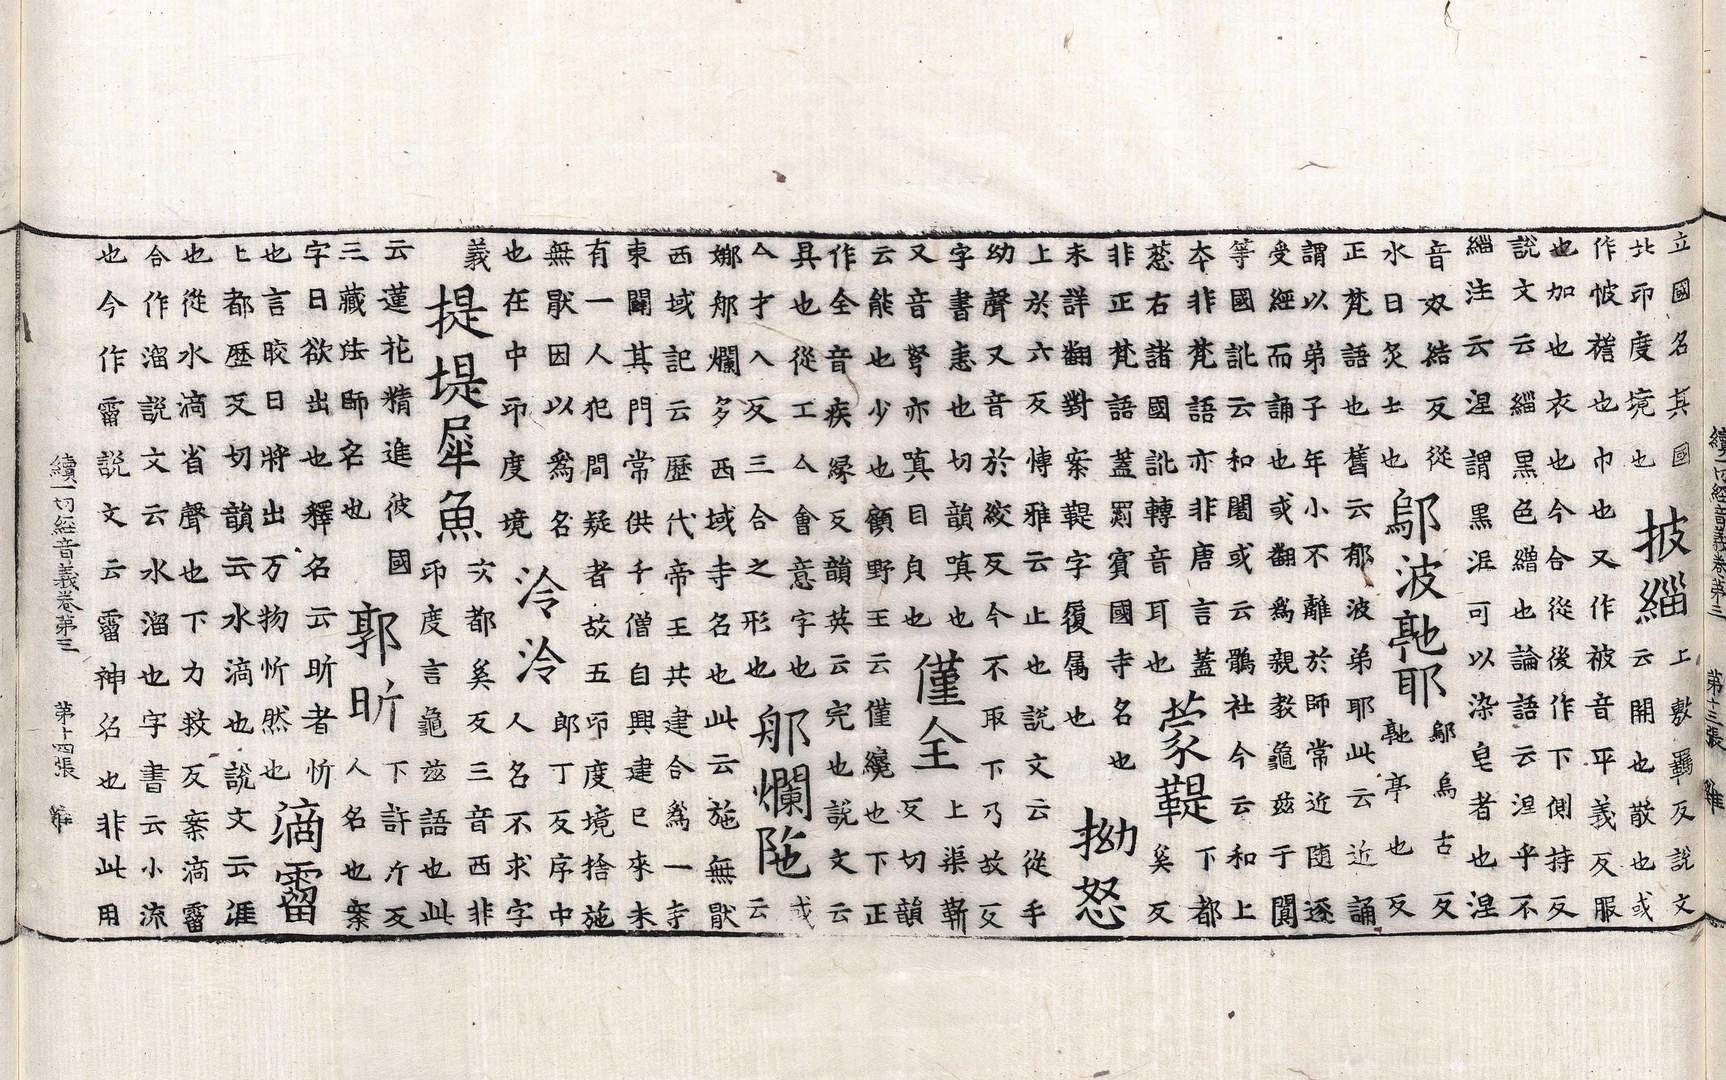 續一切經音義卷第三　第十三張　雞
立國名其國
北印度境也
披緇
上敷羈反説文
云開也散也或
作帔襜也巾也又作被音平義反服
也加也衣也今合從後作下側持反
説文云緇黑色繒也論語云涅乎不
緇注云涅謂黑涅可以染皂者也涅
音奴結反從
水日炙土也
鄔波馱耶
鄔烏古反
馱亭也反
正梵語也舊云郁波弟耶此云近誦
謂以弟子年小不離於師常近隨逐
受經而誦也或翻爲親教龜兹于闐
等國訛云和闍或云鶻社今云和上
夲非梵語亦非唐言蓋
葱右諸國訛轉音耳也
蒙鞮
下都
奚反
非正梵語蓋罽賓國寺名也
未詳翻對案鞮字復屬也
拗怒
上於六反博雅云止也説文云從手
幼聲又音於絞反今不取下乃故反
字書恚也切韻嗔也
又音弩亦嗔目皃也
僅全
上渠靳
反切韻
云能也少也顧野王云僅纔也下正
作全音疾緣反韻英云完也説文云
具也從工亼會意字也
亼才入反三合之形也
那爛陁
或
云
娜那爛多西域寺名也此云施無厭
西域記云歷代帝王共建合爲一寺
東闢其門常供千僧自興建已來未
有一人犯間疑者故五印度境捨施
無厭因以爲名
也在中印度境
泠泠
郎丁反序中
人名不求字
義
提堤犀魚
次都奚反三音西非
印度言龜兹語也此
云蓮花精進彼國
三藏法師名也
郭昕
下許斤反
人名也案
字日欲出也釋名云昕者忻
也言晈日將出万物忻然也
滴霤
上都歷反切韻云水滴也説文云涯
也從水滴省聲也下力救反案滴霤
合作溜説文云水溜也字書云小流
也今作霤説文云霤神名也非此用
續一切經音義卷第三　第十四張　雞